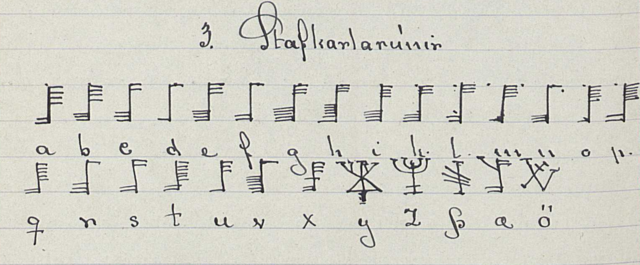 3. Stafkarlarúnir
a b c d e f g h i k l m n o p.
q r s t u v x y z þ æ ö